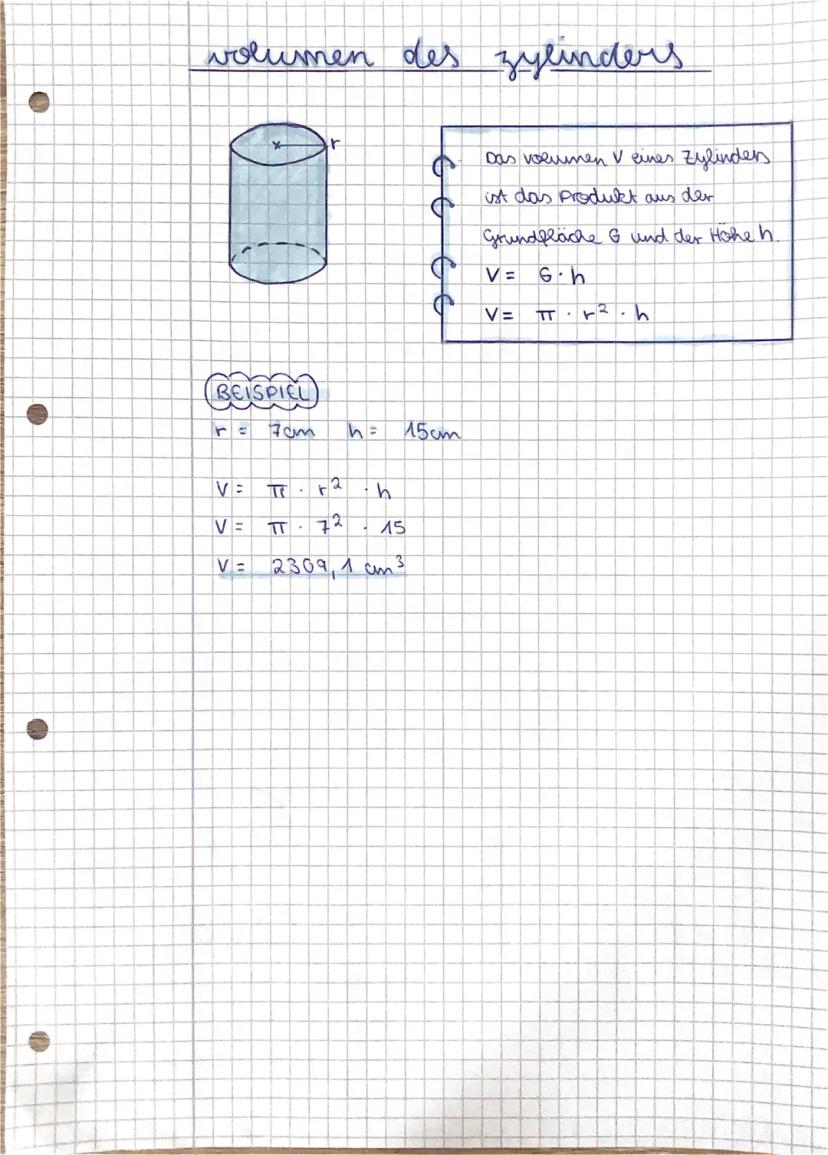 volumen des zylinders
r
Das volumen V eines Zylinders
ist das Produkt aus der
Grundfläche G und der Höhe h.
V = G · h
V = π · r² · h
BEISPIEL
r = 7cm h = 15cm
V = π · r² · h
V = π · 7² · 15
V = 2309,1 cm³